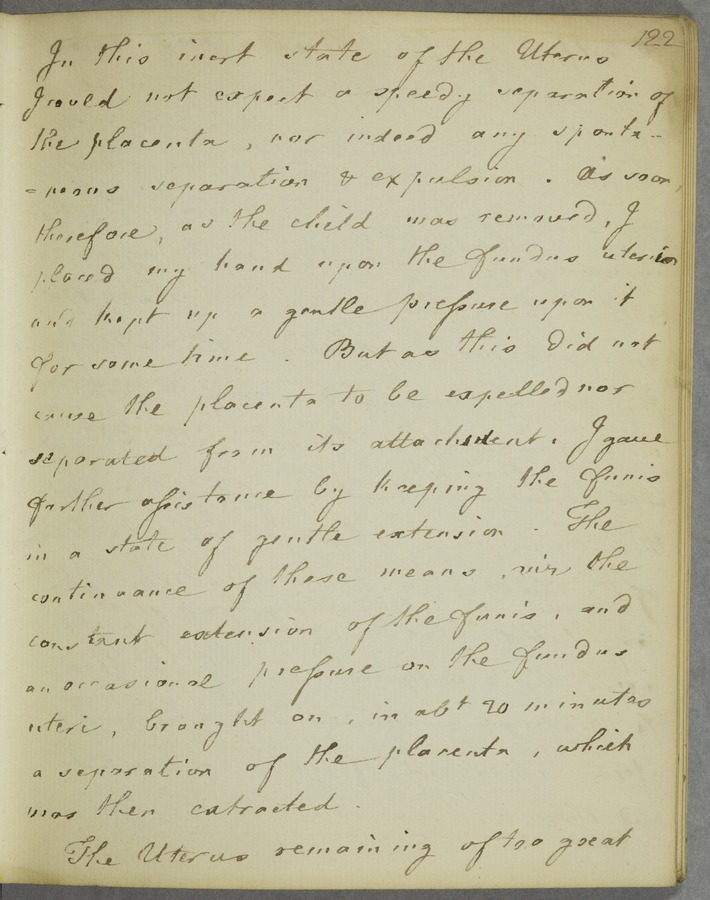 122
In this inert state of the Uterus
I could not expect a speedy separation of
the placenta, nor indeed any sponta-
=neous separation & expulsion. As soon,
therefore, as the child was removed, I
placed my hand upon the fundus uteri
and kept up a gentle pressure upon it
for some time. But as this did not
cause the placenta to be expelled nor
separated from its attachment. I gave
further assistance by keeping the funis
in a state of gentle extension. The
continuance of these means, viz the
constant extension of the funis, and
an occasional pressure on the fundus
uteri, brought on, in abt 20 minutes
a separation of the placenta, which
was then extracted.
The Uterus remaining of too great